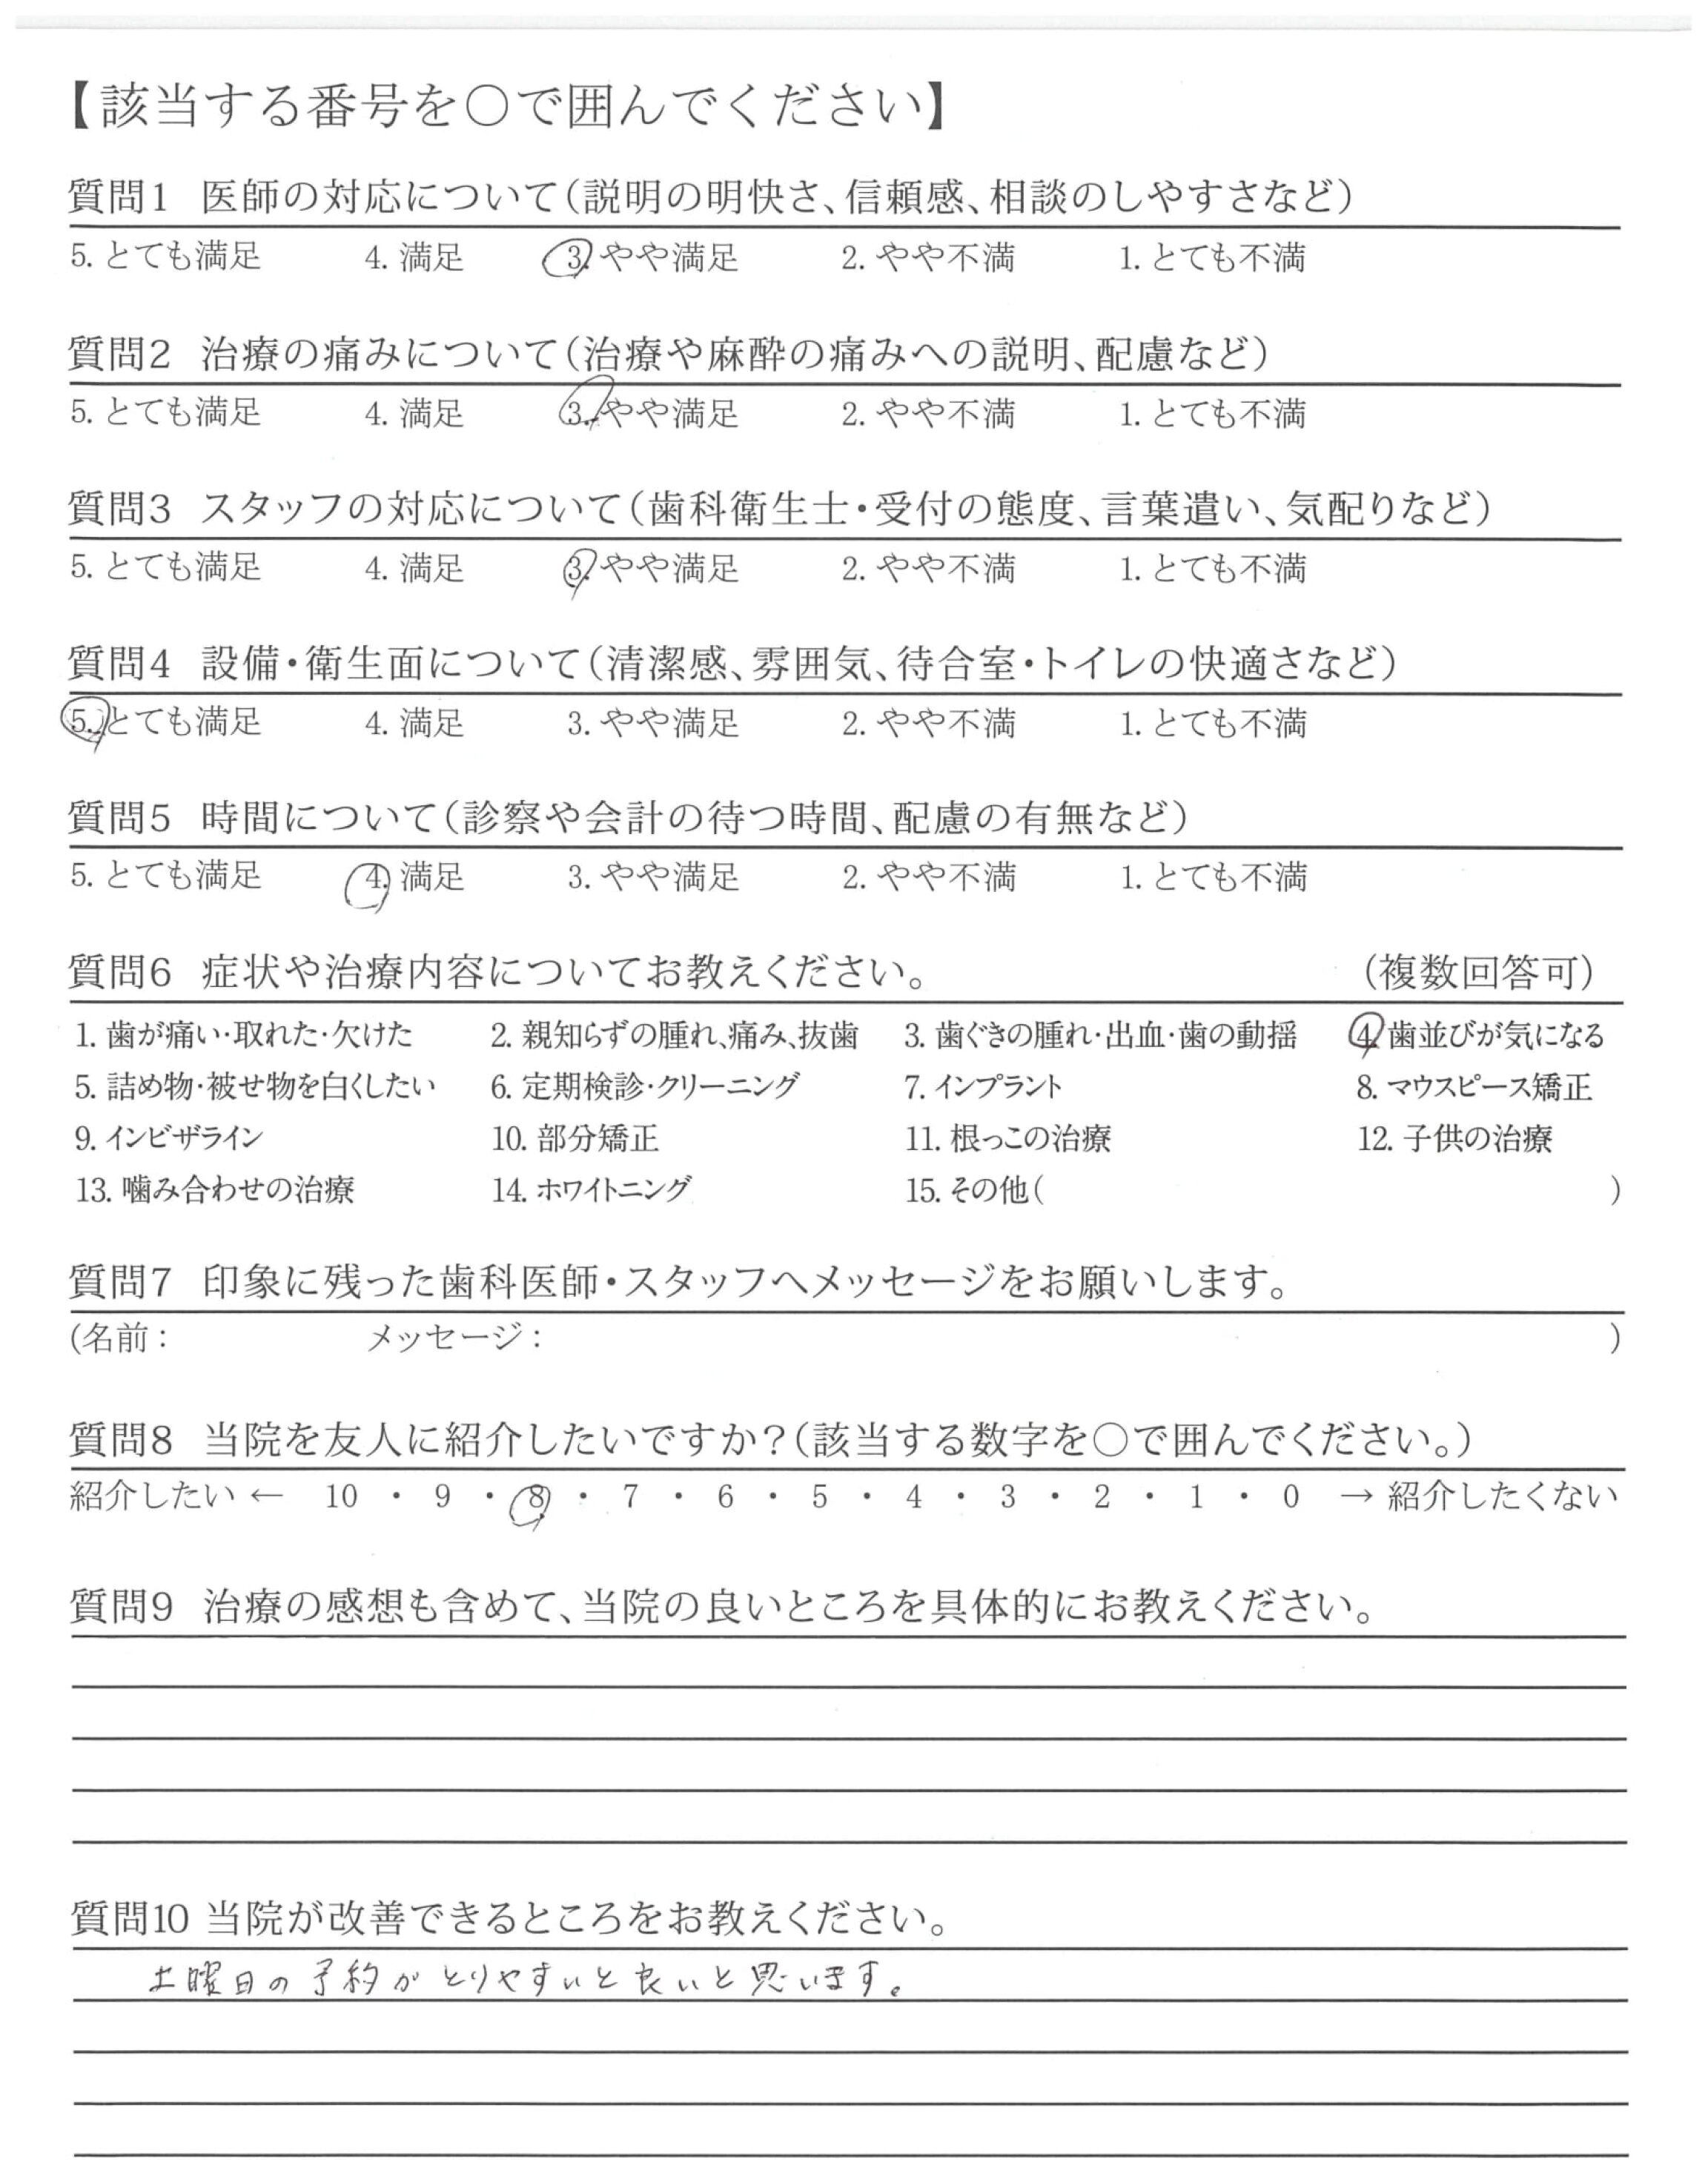 【該当する番号を○で囲んでください】
質問1 医師の対応について(説明の明快さ、信頼感、相談のしやすさなど)
5. とても満足 4. 満足 3. やや満足 2. やや不満 1. とても不満
質問2 治療の痛みについて(治療や麻酔の痛みへの説明、配慮など)
5. とても満足 4. 満足 3. やや満足 2. やや不満 1. とても不満
質問3 スタッフの対応について(歯科衛生士・受付の態度、言葉遣い、気配りなど)
5. とても満足 4. 満足 3. やや満足 2. やや不満 1. とても不満
質問4 設備・衛生面について(清潔感、雰囲気、待合室・トイレの快適さなど)
5. とても満足 4. 満足 3. やや満足 2. やや不満 1. とても不満
質問5 時間について(診察や会計の待つ時間、配慮の有無など)
5. とても満足 4. 満足 3. やや満足 2. やや不満 1. とても不満
質問6 症状や治療内容についてお教えください。 (複数回答可)
1. 歯が痛い・取れた・欠けた 2. 親知らずの腫れ、痛み、抜歯 3. 歯ぐきの腫れ・出血・歯の動揺 4. 歯並びが気になる
5. 詰め物・被せ物を白くしたい 6. 定期検診・クリーニング 7. インプラント 8. マウスピース矯正
9. インビザライン 10. 部分矯正 11. 根っこの治療 12. 子供の治療
13. 噛み合わせの治療 14. ホワイトニング 15. その他( )
質問7 印象に残った歯科医師・スタッフへメッセージをお願いします。
(名前: メッセージ: )
質問8 当院を友人に紹介したいですか?(該当する数字を○で囲んでください。)
紹介したい ← 10 ・ 9 ・ 8 ・ 7 ・ 6 ・ 5 ・ 4 ・ 3 ・ 2 ・ 1 ・ 0 → 紹介したくない
質問9 治療の感想も含めて、当院の良いところを具体的にお教えください。
質問10 当院が改善できるところをお教えください。
土曜日の予約がとりやすいと良いと思います。